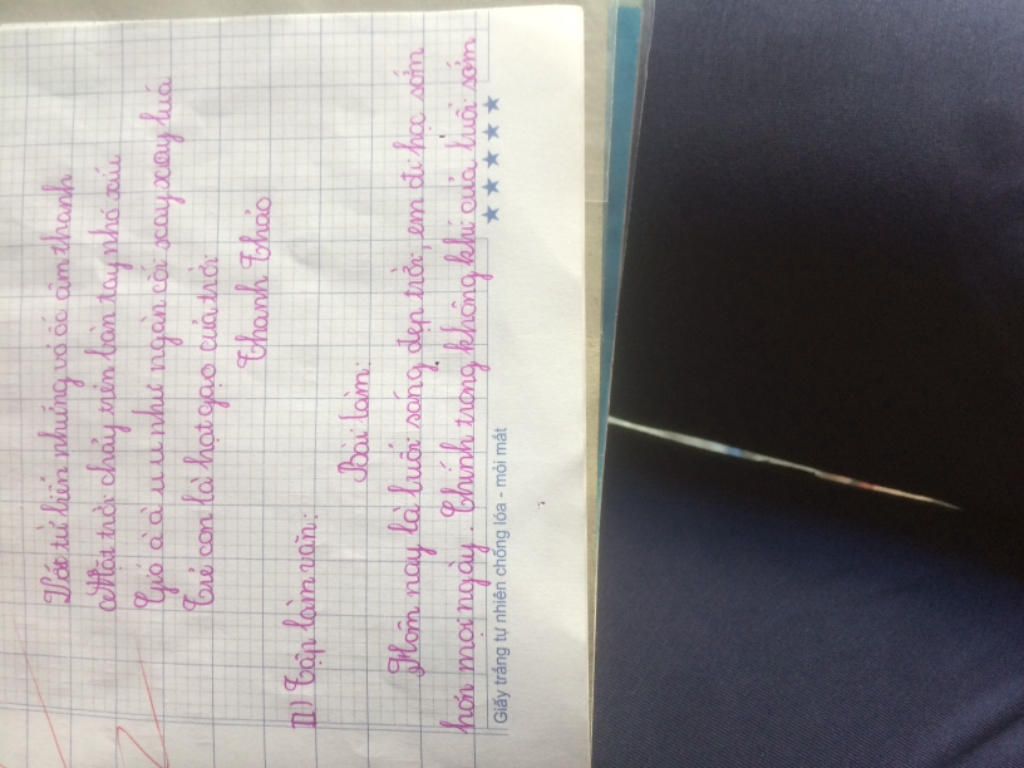 Vớt từ biển những vỏ ốc âm thanh
Mặt trời chảy bên bàn tay nhỏ xíu
Gió à à u u như ngàn cối xay xay lúa
Trẻ con là hạt gạo của trời
Thanh Thảo
II) Tập làm văn:
Bài làm:
Hôm nay là buổi sáng đẹp trời, em đi học sớm
hơn mọi ngày. Chính trong không khí của buổi sớm
Giấy trắng tự nhiên chống lóa - mỏi mắt